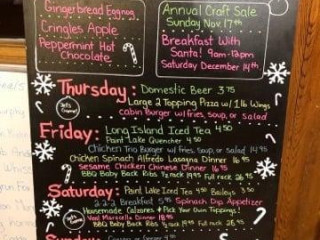 Gingerbread Eggnog
Cringles Apple
Peppermint Hot
Chocolate
Annual Craft Sale
Sunday Nov 17th
Breakfast With
Santa! 9am-12pm
Saturday December 14th
Thursday: Domestic Beer 3.75
Large 2 Topping Pizza w/ 1 lb Wings
Cabin Burger w/ fries, soup, or salad
Friday: Long Island Iced Tea 4.50
Paint Lake Quencher 4.50
Chicken Trio Burger w/ fries, soup, or salad
Chicken Spinach Alfredo Lasagna Dinner 16.95
Sesame Chicken Chinese Dinner 16.95
BBQ Baby Back Ribs ½ rack 19.95 Full rack 26.95
Saturday: Paint Lake Iced Tea 4.50 Baileys 3.50
2-2-2 Breakfast 5.95 Spinach Dip Appetizer
Homemade Calzones * Pick Your Own Toppings!
Veal Marsala Dinner 18.95
BBQ Baby Back Ribs ½ rack 19.95 Full rack 26.95
Sunday